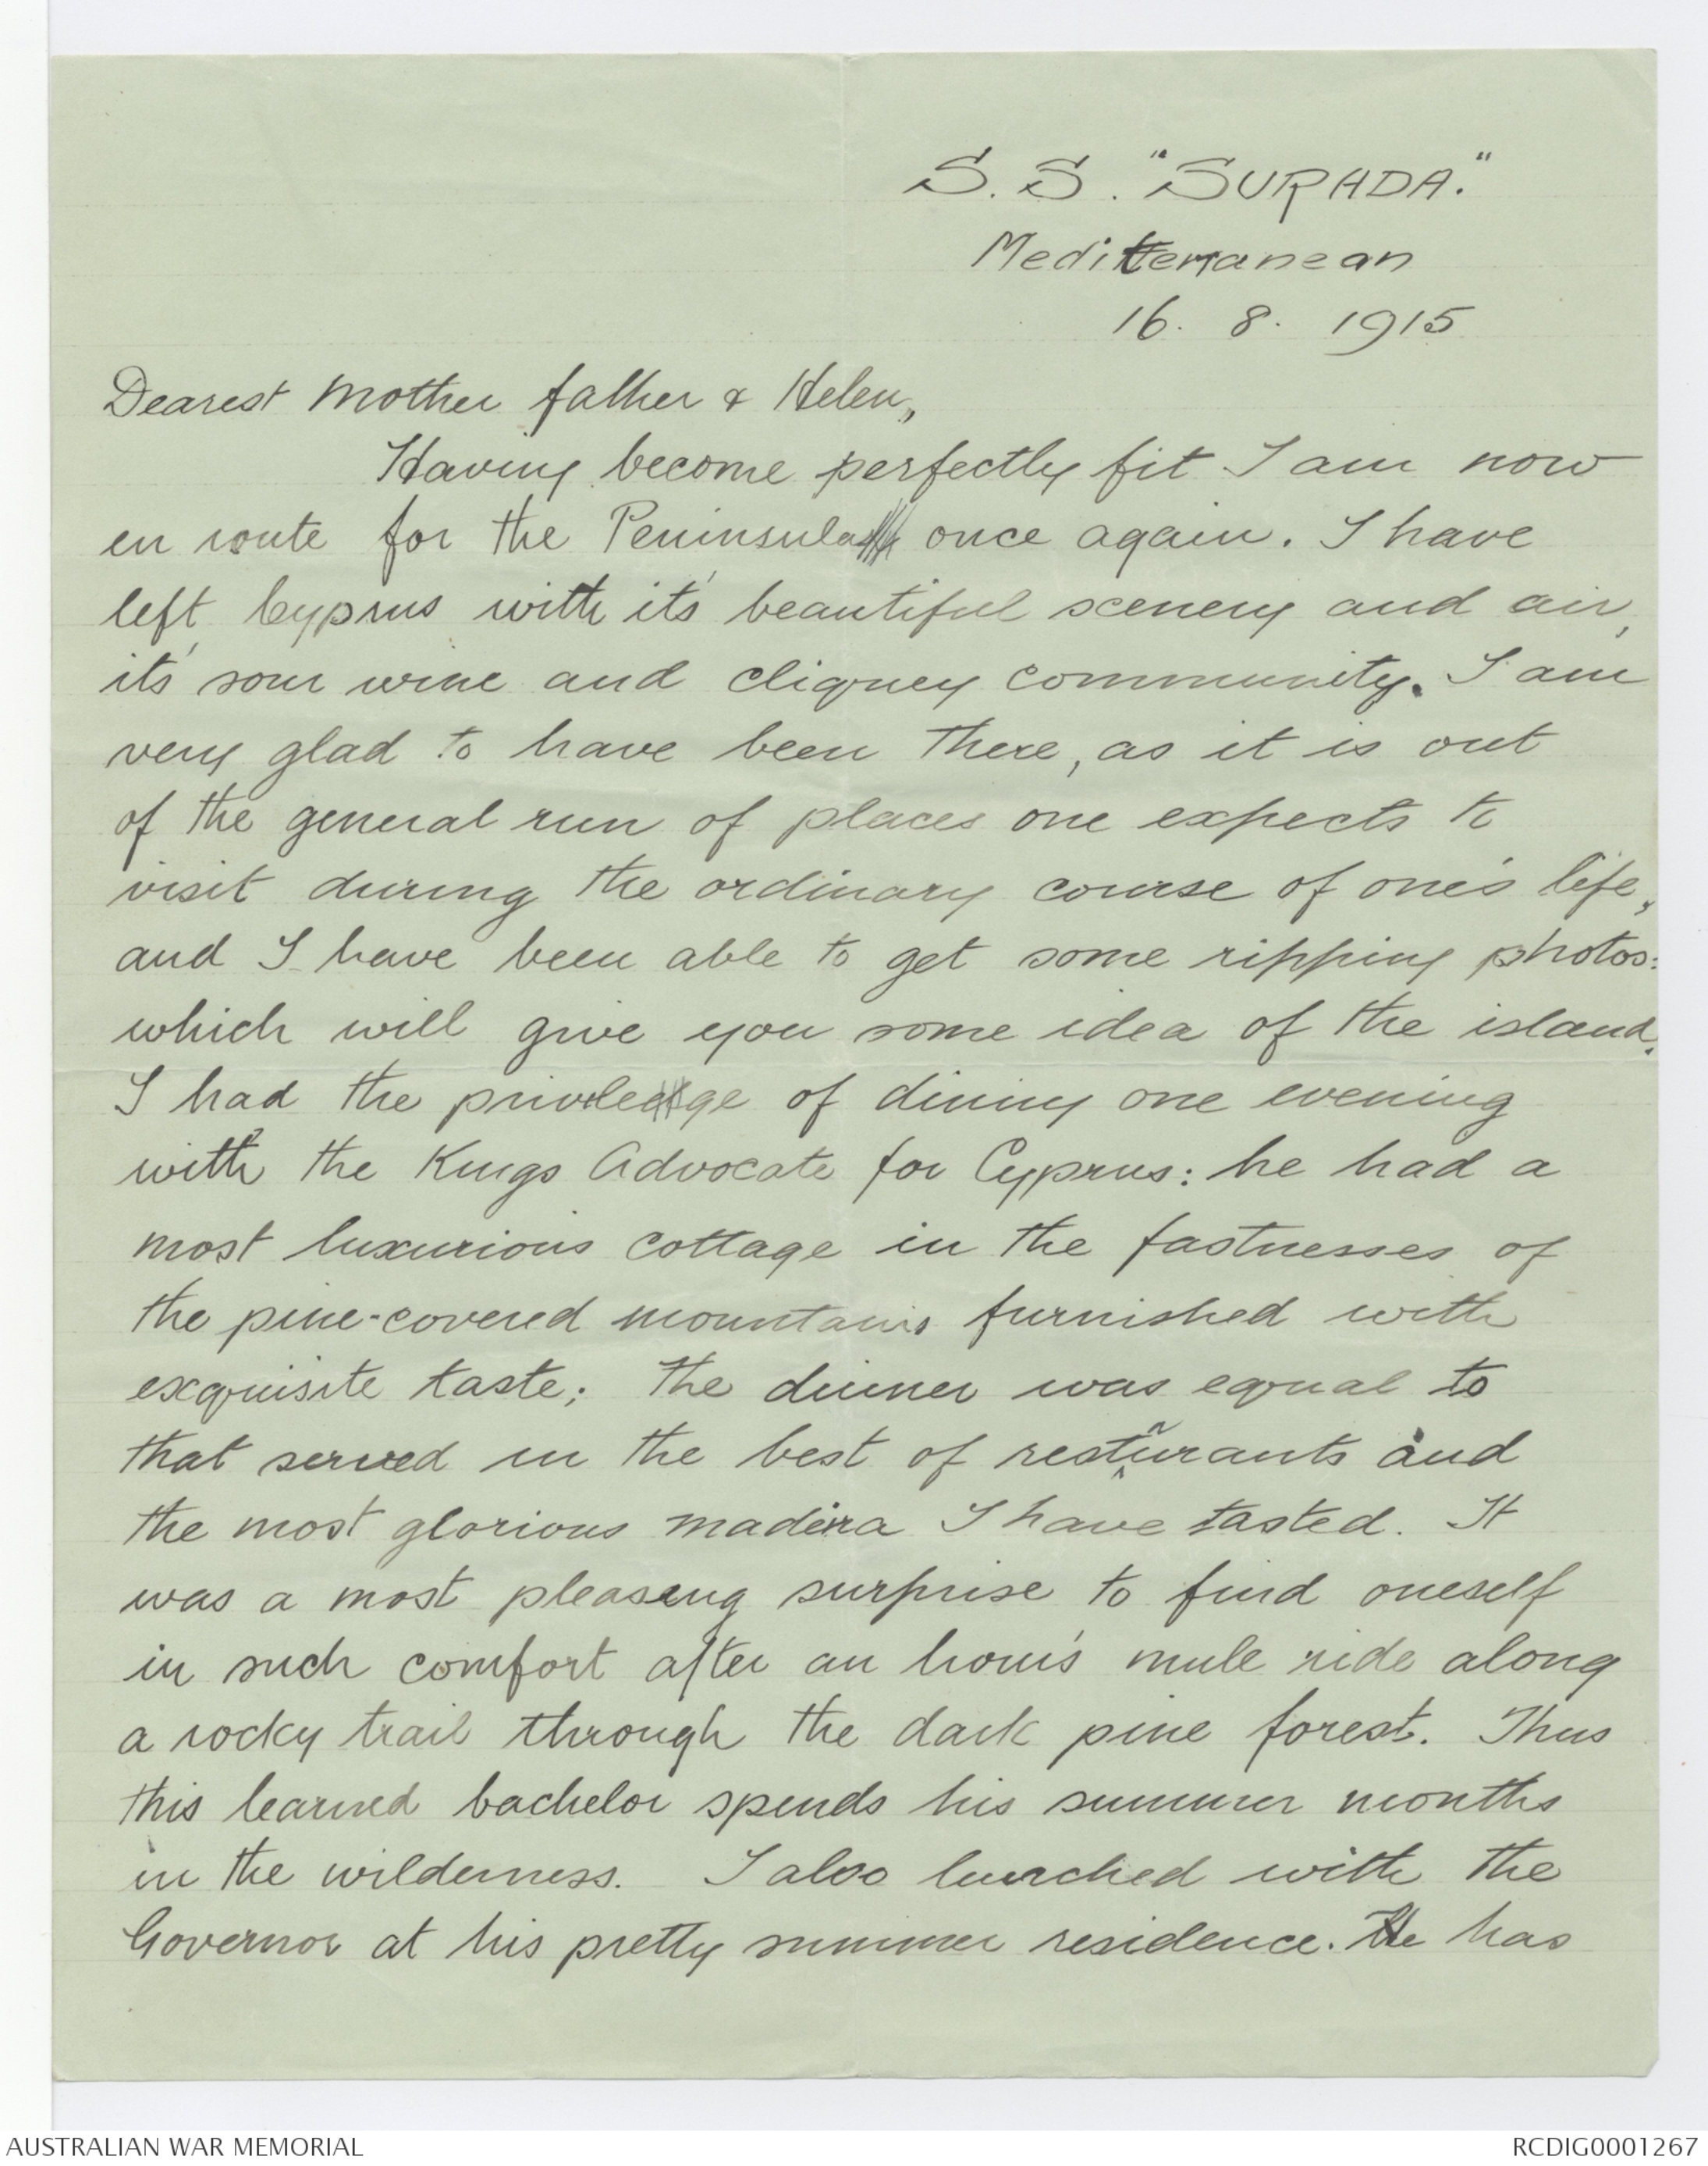 S.S. "SURADA."
Mediterranean
16. 8. 1915
Dearest Mother father & Helen,
Having become perfectly fit I am now
en route for the Peninsula once again. I have
left Cyprus with it's beautiful scenery and air,
it's sour wine and cliquey community. I am
very glad to have been there, as it is out
of the general run of places one expects to
visit during the ordinary course of one's life,
and I have been able to get some ripping photos:
which will give you some idea of the island.
I had the privilege of dining one evening
with the Kings Advocate for Cyprus: he had a
most luxurious cottage in the fastnesses of
the pine-covered mountains furnished with
exquisite taste; the dinner was equal to
that served in the best of restaurants and
the most glorious madeira I have tasted. It
was a most pleasing surprise to find oneself
in such comfort after an hour's mule ride along
a rocky trail through the dark pine forest. Thus
this learned bachelor spends his summer months
in the wilderness. I also lunched with the
Governor at his pretty summer residence. He has
AUSTRALIAN WAR MEMORIAL
RCDIG0001267